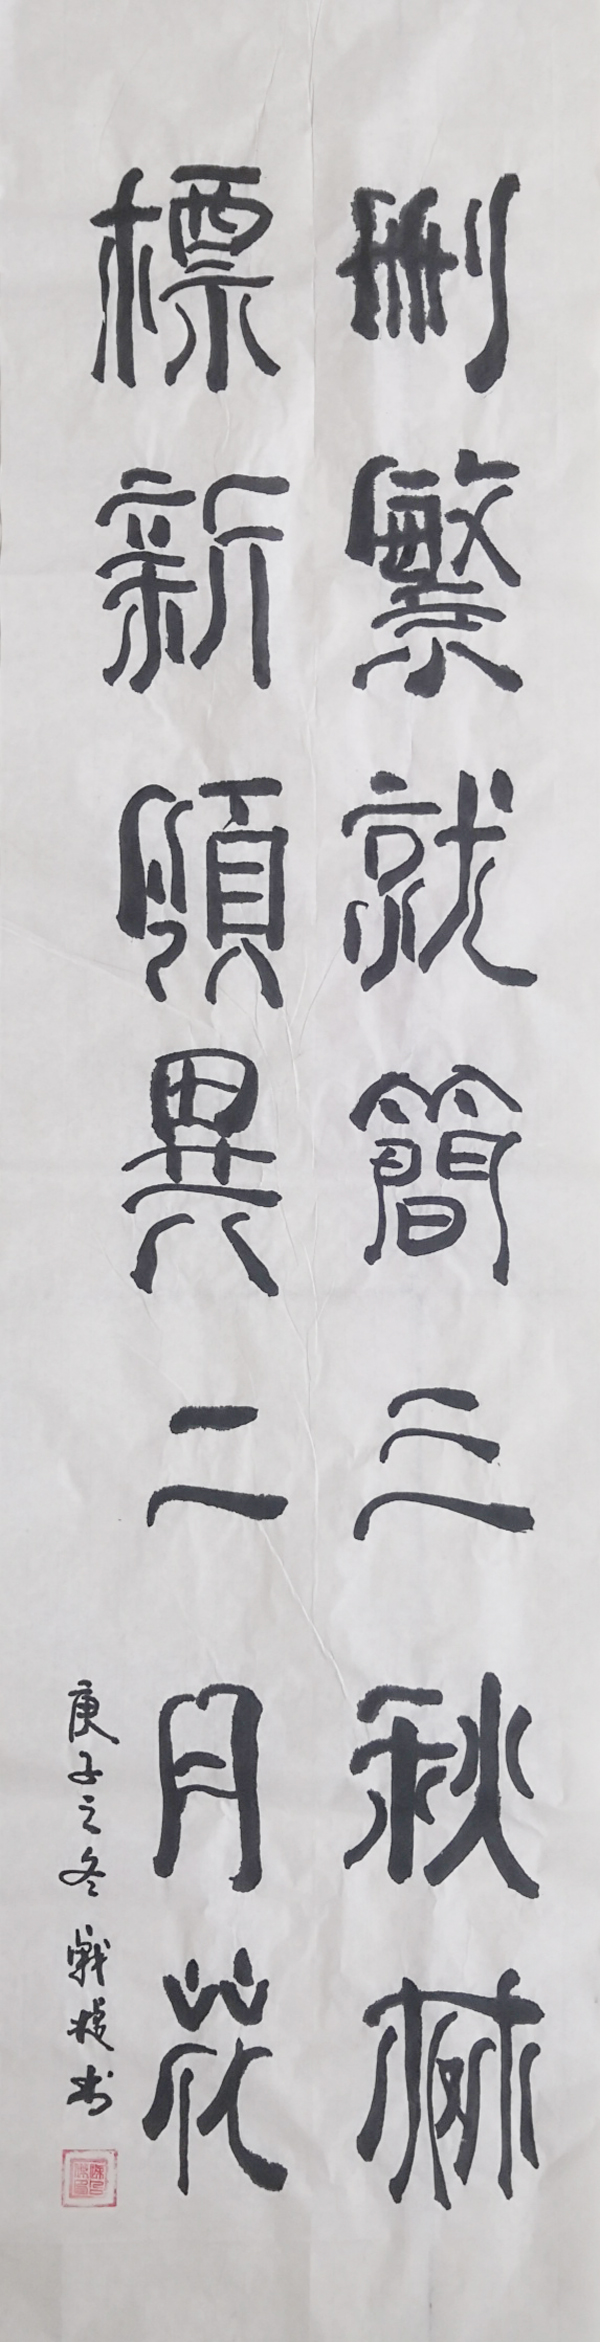 刪繁就簡三秋树
標新領異二月花
庚子之冬 戰 书